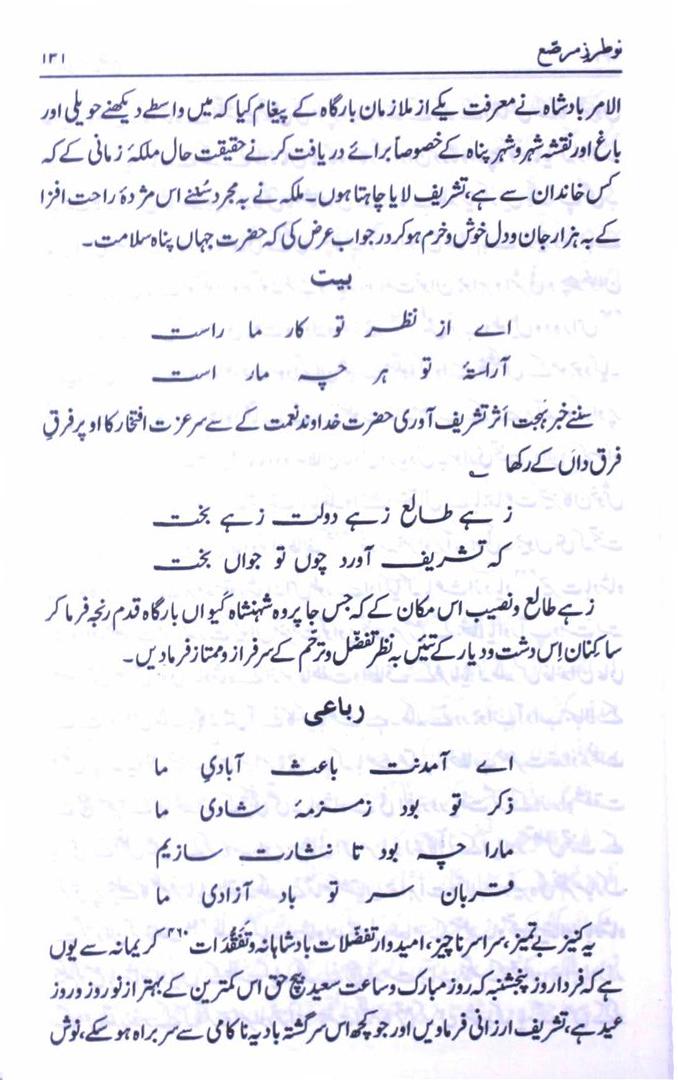 نو طرزِ مرصّع
۱۳۱
الامر بادشاہ نے معرفت یکے از ملازمان بارگاہ کے پیغام کیا کہ میں واسطے دیکھنے حویلی اور
باغ اور نقشہ شہر و شہر پناہ کے خصوصاً برائے دریافت کرنے حقیقت حال ملکۂ زمانی کے کہ
کس خاندان سے ہے، تشریف لایا چاہتا ہوں۔ ملکہ نے بہ مجرد سُننے اس مژدۂ راحت افزا
کے بہ ہزار جان و دل خوش و خرم ہو کر در جواب عرض کی کہ حضرت جہاں پناہ سلامت۔
بیت
اے از نظر تو کار ما راست
آراستۂ تو ہر چہ مار است
سننے خبر بہجت اثر تشریف آوری حضرت خداوند نعمت کے سے سر عزت افتخار کا اوپر فرقِ
فرق داں کے رکھا ؎
زہے طالع زہے دولت زہے بخت
کہ تشریف آورد چوں تو جواں بخت
زہے طالع و نصیب اس مکان کے کہ جس جا پر وہ شہنشاہ کَیواں بارگاہ قدم رنجہ فرما کر
ساکنان اِس دشت و دیار کے تئیں بہ نظر تفضّل و ترحّم کے سرفراز و ممتاز فرمادیں۔
رباعی
اے آمدنت باعث آبادیِ ما
ذکر تو بود زمزمۂ شادی ما
مارا چہ بود تا نثارت سازیم
قربان سر تو باد آزادی ما
یہ کنیز بے تمیز، سراسر ناچیز، امیدوار تفضّلات بادشاہانہ و تَفَقُّدات ۴۶۰ کریمانہ سے یوں
ہے کہ فردا روز پنجشنبہ کہ روز مبارک و ساعت سعید بیچ حق اس کمترین کے بہتر از نو روز و روز
عید ہے، تشریف ارزانی فرمادیں اور جو کچھ اس سرگشتہ بادیہ ناکامی سے سربراہ ہو سکے، نوش